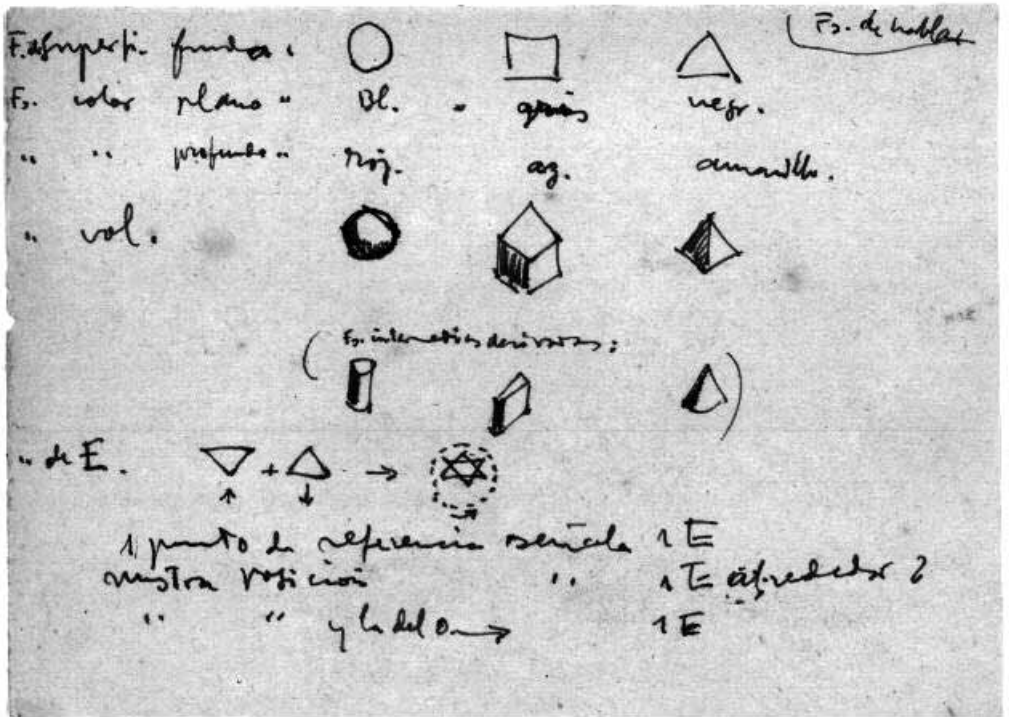 Fs. de hablar
F. de superfi. funda.
Fs. color plano " Bl. " gris negr.
" " profundo " roj. az. amarillo.
" vol.
(Fs. intermedias derivadas:
" de E. + →
1 punto de referencia señala 1 E
nuestra posición " 1 E alrededor
" " y la del o → 1 E